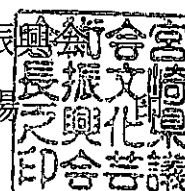 宮崎県議
会文化芸
術振興会
興長之印
振
場